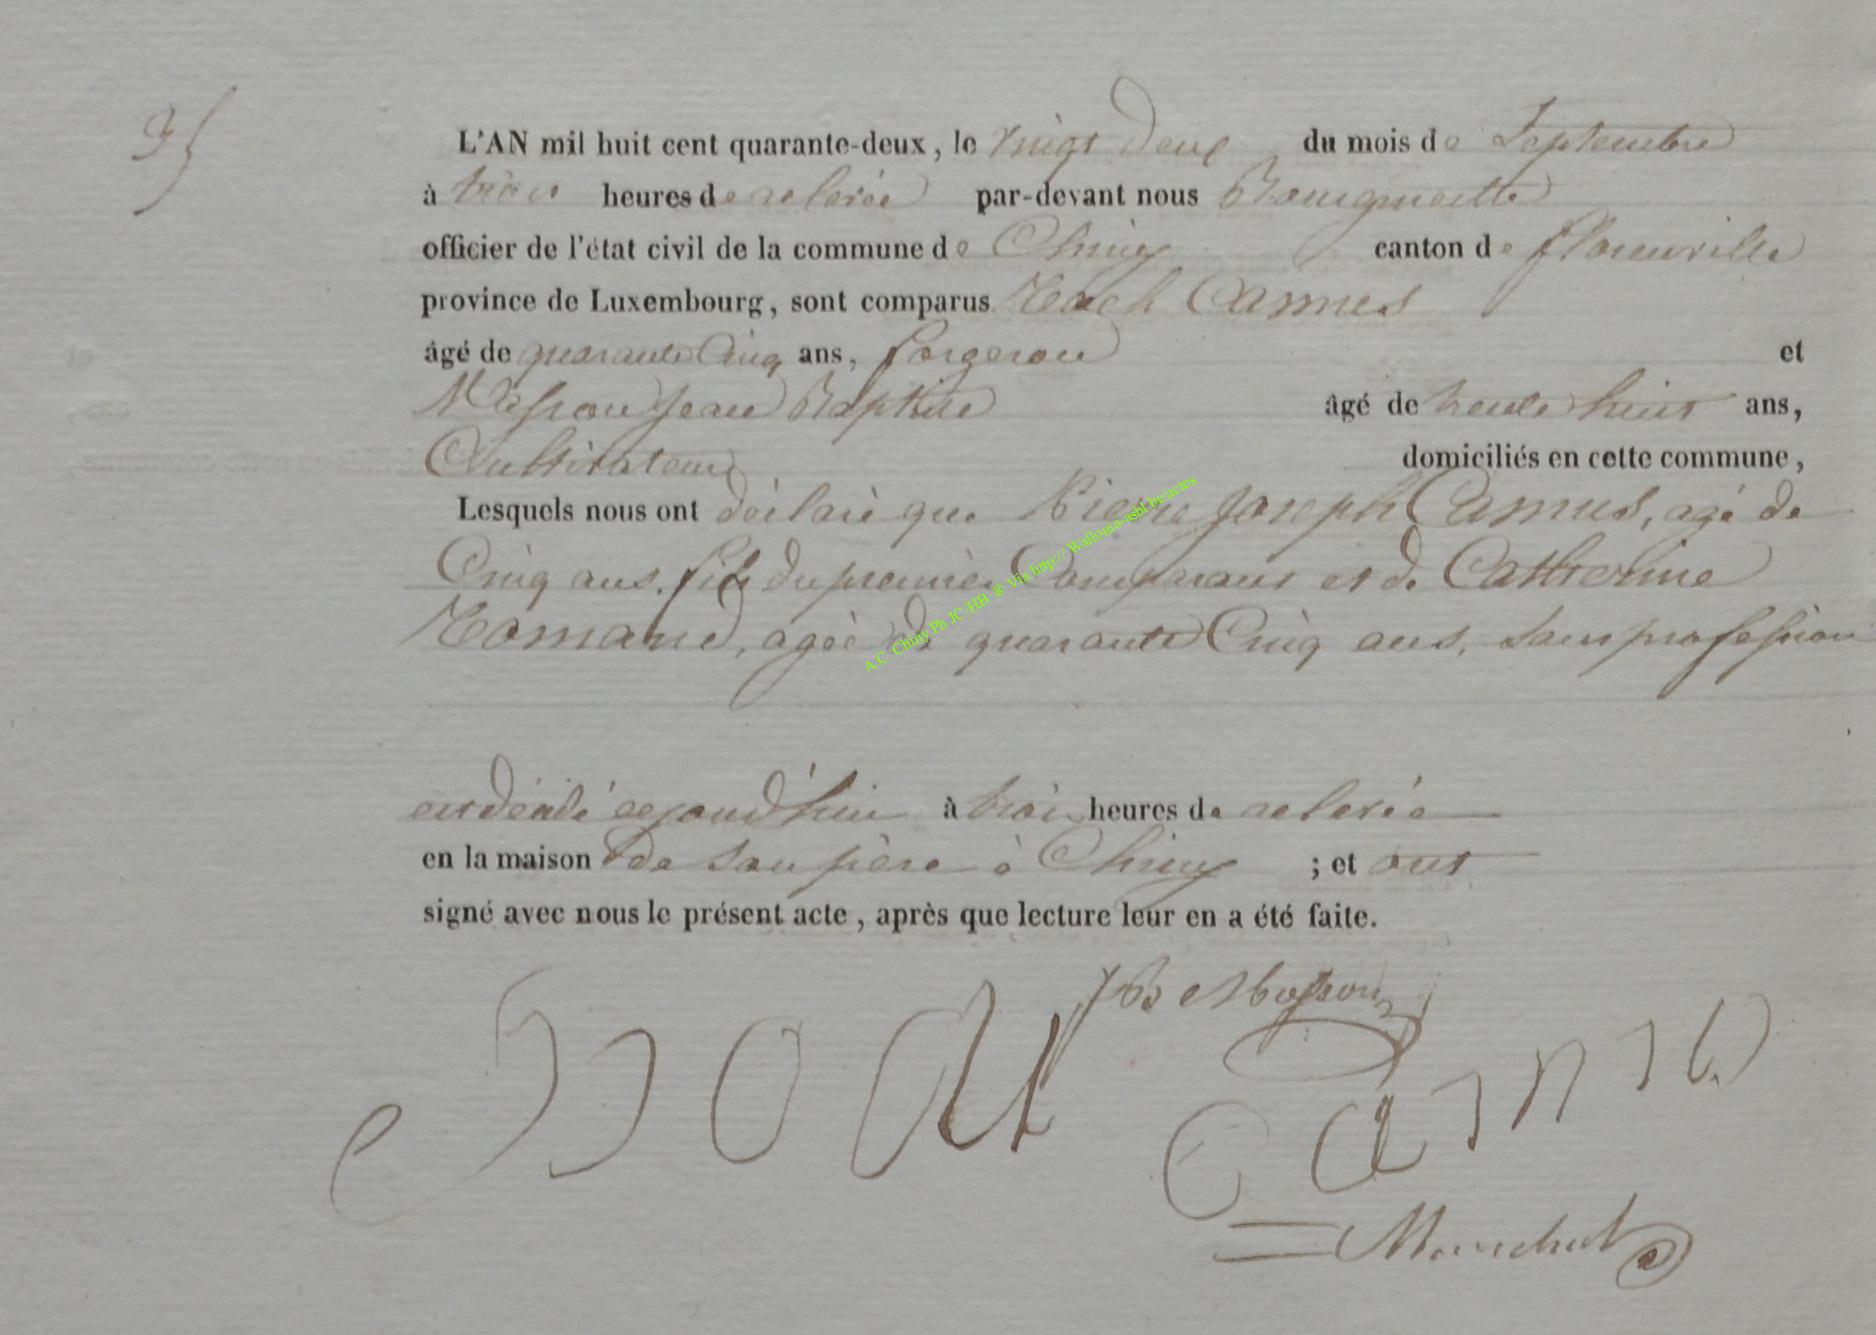 35
L'AN mil huit cent quarante-deux, le vingt deux du mois de Septembre
à trois heures de relevée par-devant nous Bourgmestre
officier de l'état civil de la commune de Chiny canton de florenville
province de Luxembourg, sont comparus Camus
âgé de quarante Cinq ans, forgeron et
Masson Jean Baptiste âgé de trente huit ans,
Cultivateur domiciliés en cette commune,
Lesquels nous ont déclaré que Pierre Joseph Camus, agé de
Cinq ans, fils du premier Comparant et de Catherine
agée de quarante Cinq ans, sans profession
est décédé aujourd'hui à trois heures de relevée
en la maison de son père à Chiny ; et ont
signé avec nous le présent acte, après que lecture leur en a été faite.
JB Masson
A C Chiny Ph JC/HB @ Via http:// Wallonia-asbl.be/actes